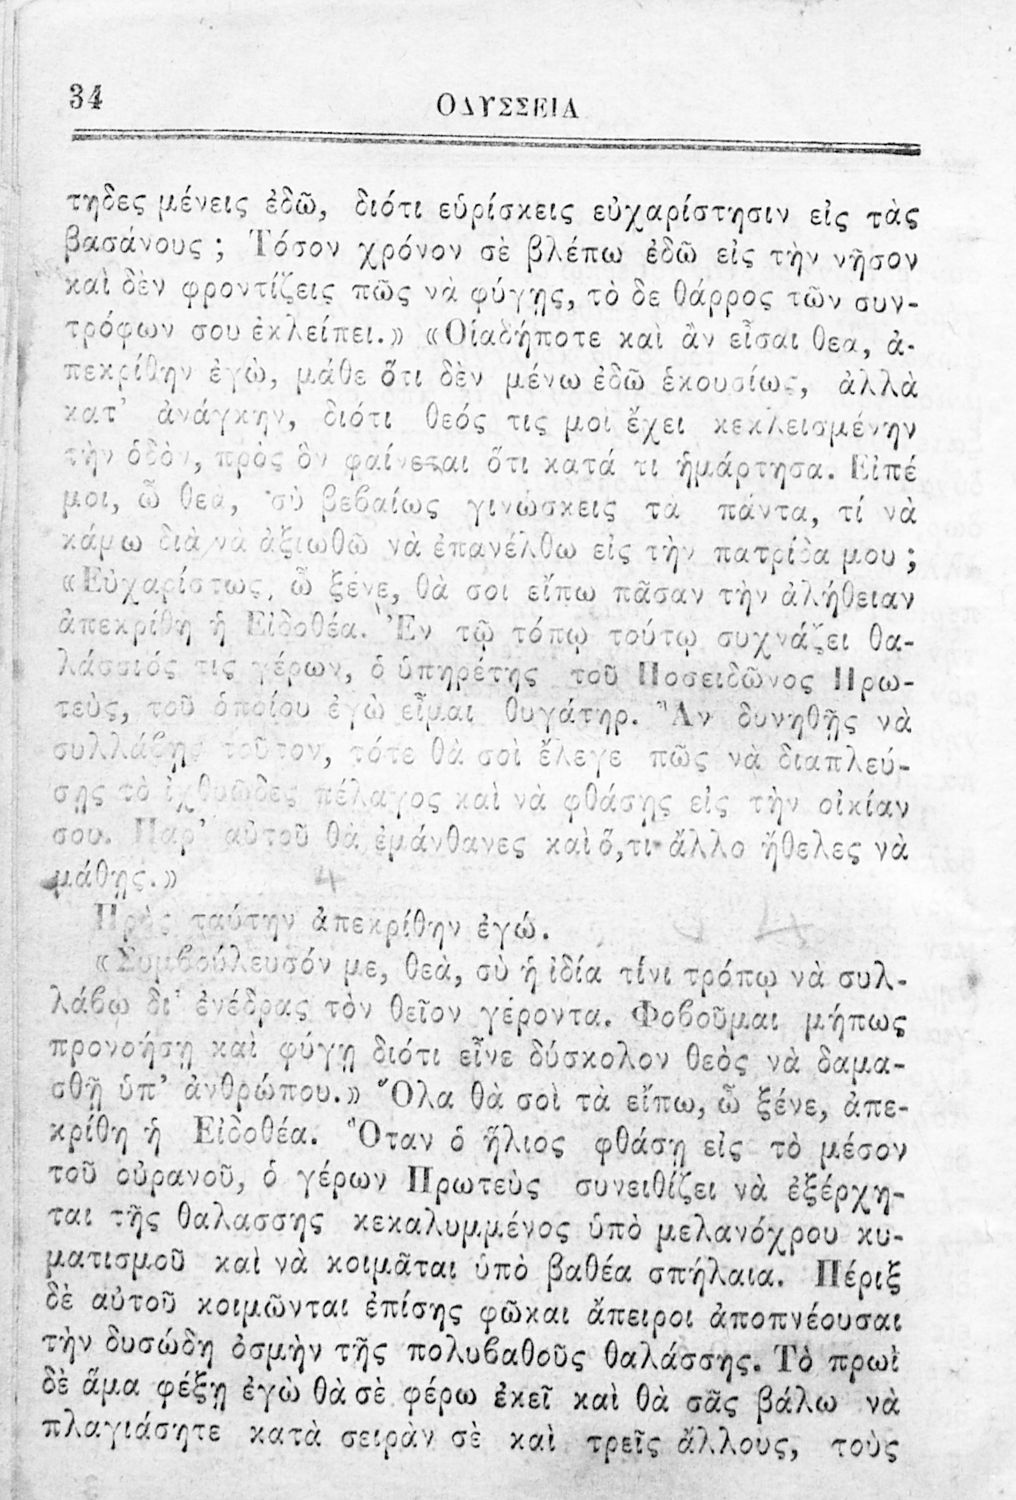 34
ΟΔΥΣΣΕΙΑ
τηδες μένεις ἐδῶ, διότι εὑρίσκεις εὐχαρίστησιν εἰς τὰς
βασάνους ; Τόσον χρόνον σὲ βλέπω ἐδῶ εἰς τὴν νῆσον
καὶ δὲν φροντίζεις πῶς νὰ φύγῃς, τὸ δε θάρρος τῶν συν-
τρόφων σου ἐκλείπει.» «Οἱαδήποτε καὶ ἂν εἶσαι θεα, ἀ-
πεκρίθην ἐγὼ, μάθε ὅτι δὲν μένω ἐδῶ ἑκουσίως, ἀλλὰ
κατ' ἀνάγκην, διότι θεός τις μοὶ ἔχει κεκλεισμένην
τὴν ὁδὸν, πρὸς ὃν φαίνεται ὅτι κατά τι ἡμάρτησα. Εἰπέ
μοι, ὦ θεα, σὺ βεβαίως γινώσκεις τα πάντα, τί νὰ
κάμω διὰ νὰ ἀξιωθῶ νὰ ἐπανέλθω εἰς τὴν πατρίδα μου ;
«Εὐχαρίστως, ὦ ξένε, θὰ σοι εἴπω πᾶσαν τὴν ἀλήθειαν
ἀπεκρίθη ἡ Εἰδοθέα. Ἐν τῷ τόπῳ τούτῳ συχνάζει θα-
λάσσιός τις γέρων, ὁ ὑπηρέτης τοῦ Ποσειδῶνος Πρω-
τεὺς, τοῦ ὁποίου ἐγὼ εἶμαι θυγάτηρ. Ἂν δυνηθῇς νὰ
συλλάβῃς τοῦτον, τότε θὰ σοὶ ἔλεγε πῶς νὰ διαπλεύ-
σῃς τὸ ἰχθυῶδες πέλαγος καὶ νὰ φθάσῃς εἰς τὴν οἰκίαν
σου. Παρ' αὐτοῦ θὰ ἐμάνθανες καὶ ὅ,τι ἄλλο ἤθελες νὰ
μάθῃς.»
Πρὸς ταύτην ἀπεκρίθην ἐγώ.
«Συμβούλευσόν με, θεὰ, σὺ ἡ ἰδία τίνι τρόπῳ νὰ συλ-
λάβω δι' ἐνέδρας τὸν θεῖον γέροντα. Φοβοῦμαι μήπως
προνοήσῃ καὶ φύγῃ διότι εἶνε δύσκολον θεὸς νὰ δαμα-
σθῇ ὑπ' ἀνθρώπου.» Ὅλα θὰ σοὶ τὰ εἴπω, ὦ ξένε, ἀπε-
κρίθη ἡ Εἰδοθέα. Ὅταν ὁ ἥλιος φθάσῃ εἰς τὸ μέσον
τοῦ οὐρανοῦ, ὁ γέρων Πρωτεὺς συνειθίζει νὰ ἐξέρχη-
ται τῆς θαλασσης κεκαλυμμένος ὑπὸ μελανόχρου κυ-
ματισμοῦ καὶ νὰ κοιμᾶται ὑπὸ βαθέα σπήλαια. Πέριξ
δὲ αὐτοῦ κοιμῶνται ἐπίσης φῶκαι ἄπειροι ἀποπνέουσαι
τὴν δυσώδη ὀσμὴν τῆς πολυβαθοῦς θαλάσσης. Τὸ πρωὶ
δὲ ἅμα φέξῃ ἐγὼ θὰ σὲ φέρω ἐκεῖ καὶ θὰ σᾶς βάλω νὰ
πλαγιάσητε κατὰ σειρὰν σὲ καὶ τρεῖς ἄλλους, τοὺς